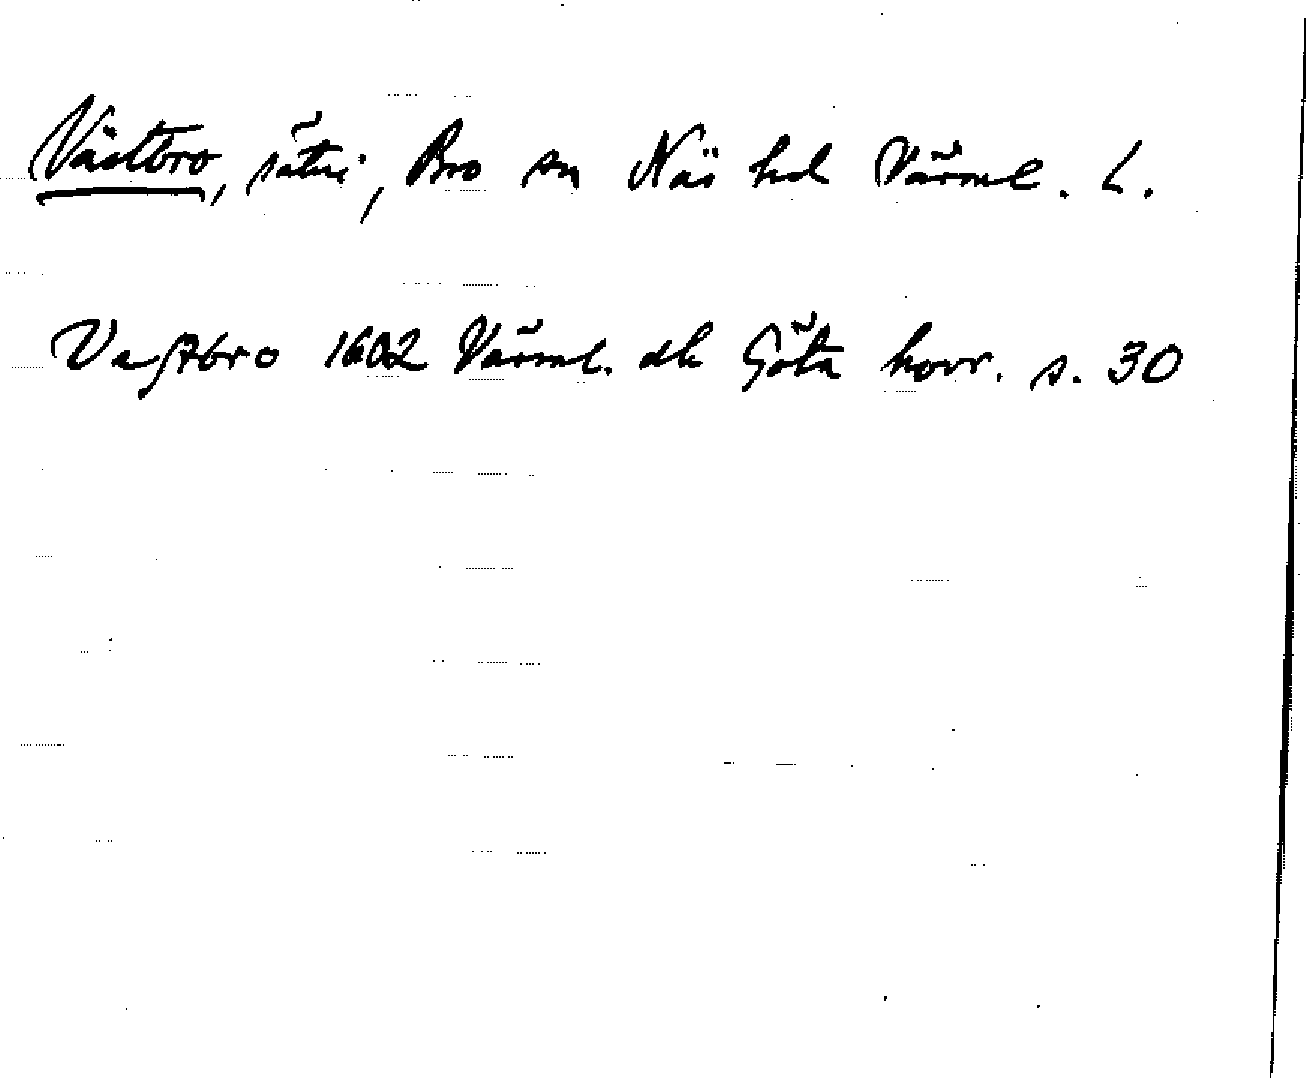 Västbro, säteri, Bro sn Näs hd Värml. L.
Vastbro 1602 Värml. dh Göta hovr. s. 30